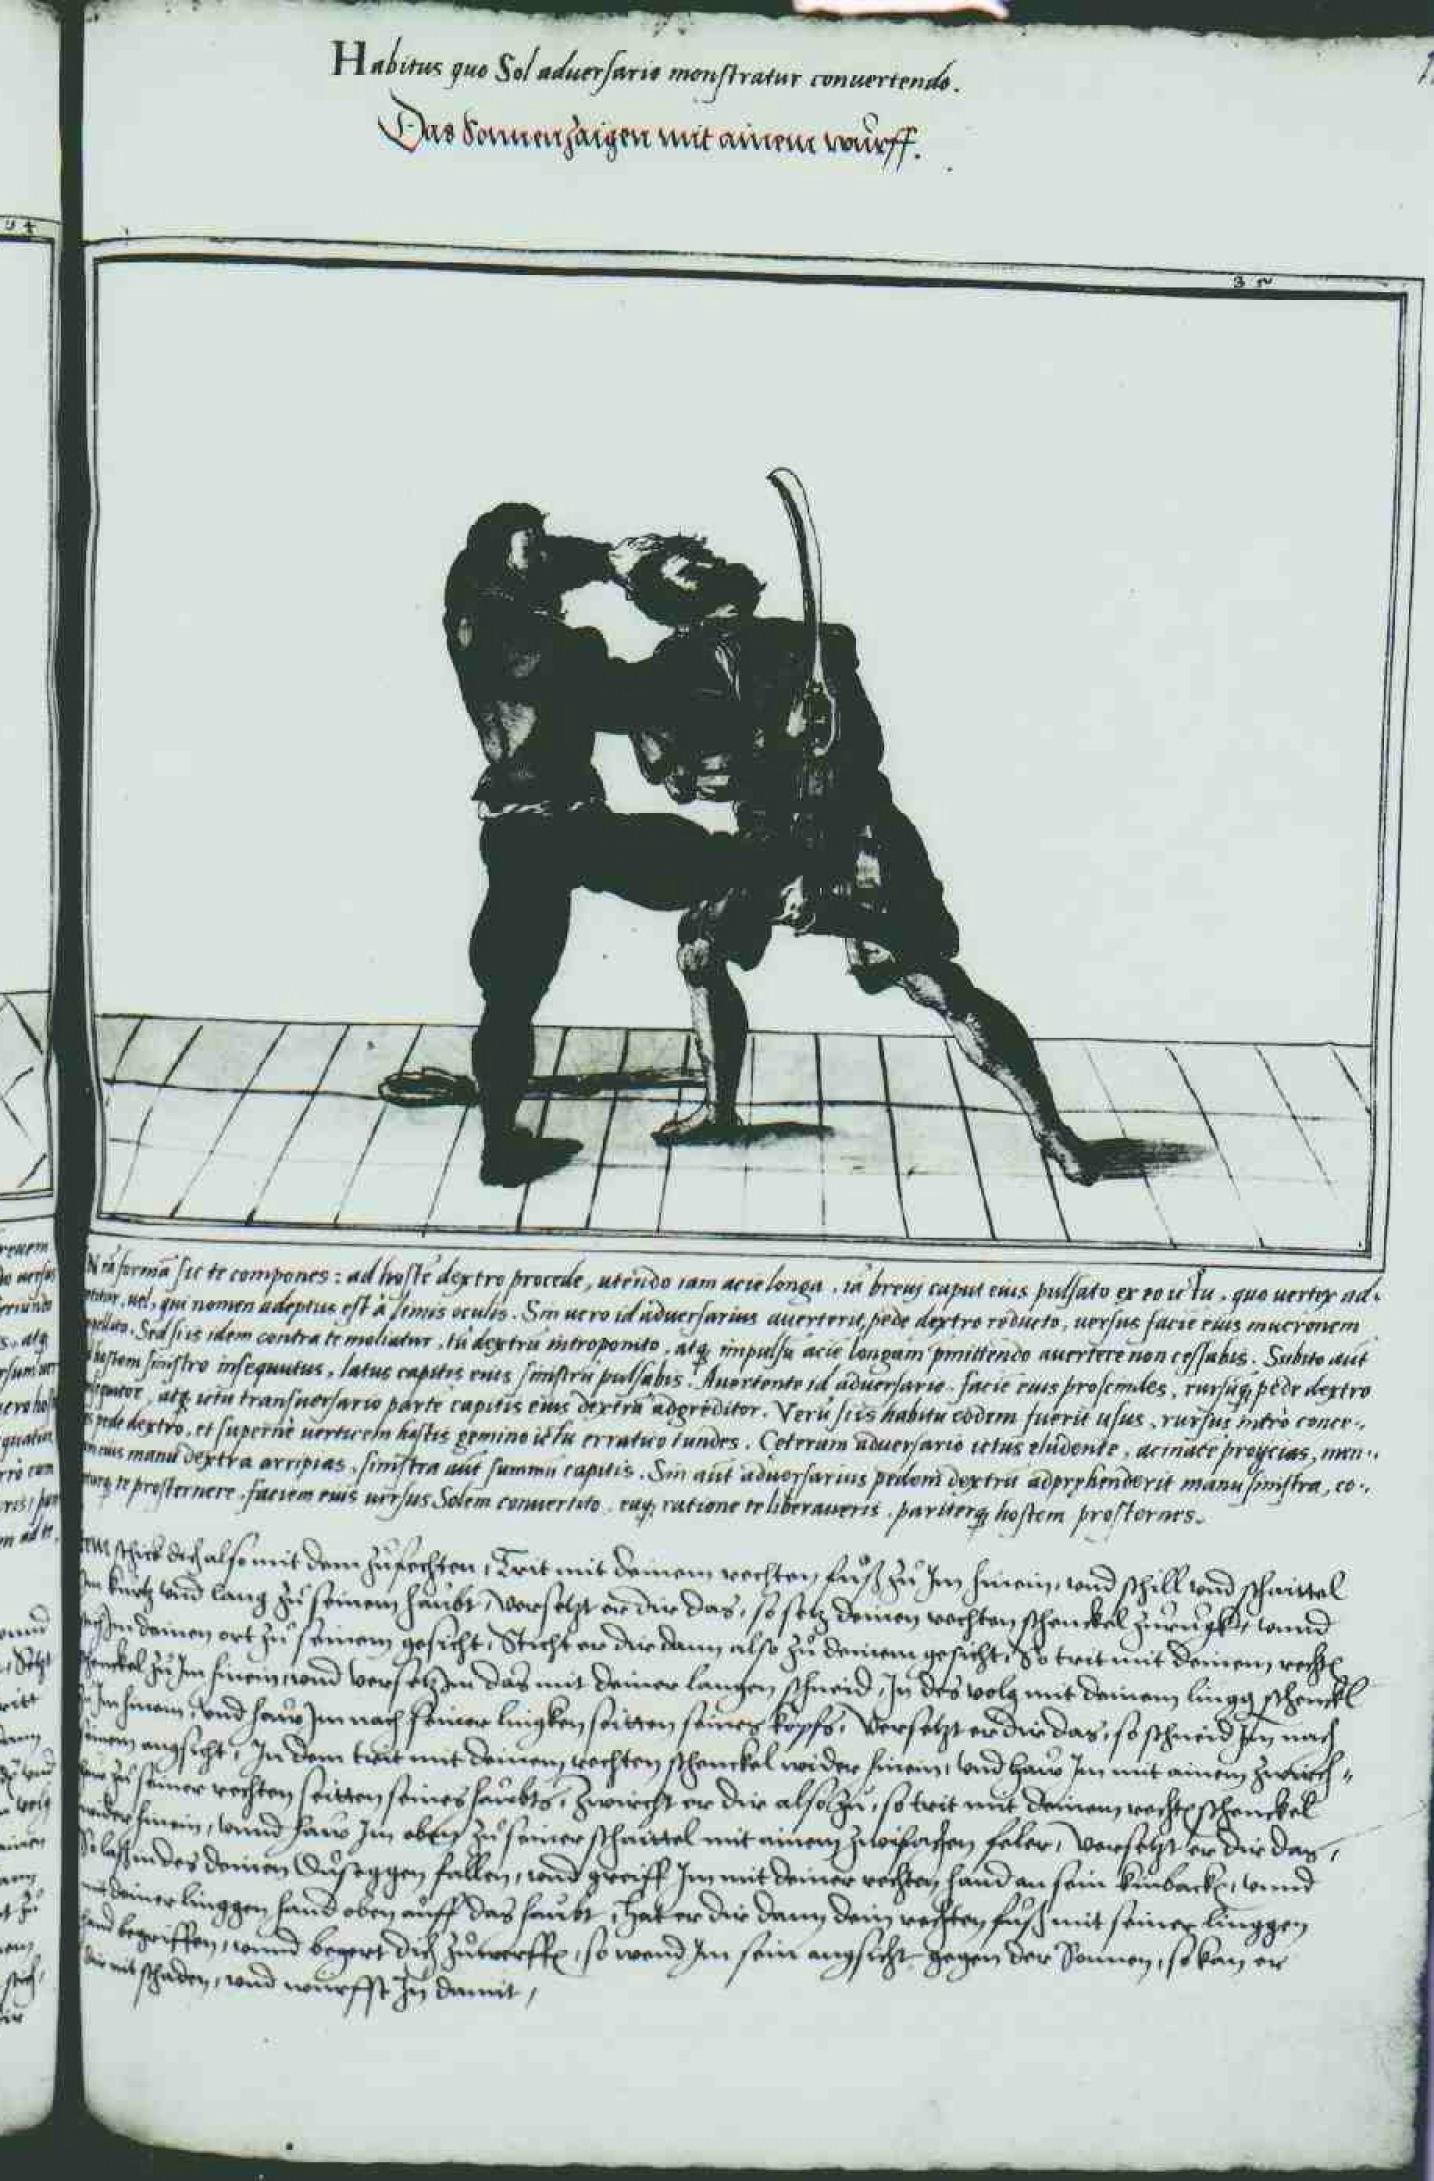 Habitus quo Sol adversario monstratur convertendo.
Das Sonnenzaigen mit ainem wurff.
34
32
formā sic te compones: ad hostē dextro procede, utendo iam acie longa, iā brevj caput eius pulsato ex eo ictu, quo vertex ad-
vel, qui nomen adeptus est à simis oculis. Sin vero id adversarius averterit, pede dextro reducto, versus faciē eius mucronem
Sed si is idem contra te moliatur, tu dextrū introponito, atq impulsū acie longam pmittendo avertere non cessabis. Subito aūt
sinistro insequutus, latus capitis eius sinistrū pulsabis. Avertente id adversario, faciē eius proscindes, rursusq pede dextro
atq ictu transversario parte capitis eius dextrū adgreditor. Verū si is habitu eodem fuerit usus, rursus intrò conce-
pede dextro, et supernè verticem hostis gemino ictu erratico tundes. Ceterum adversario ictus eludente, acinacē proijcias, men-
eius manu dextra arripias, sinistra aūt summū capitis. Sin aūt adversarius pedem dextrū adprehenderit manu sinistra, co-
te prosternere, faciem eius versus Solem convertito, eaq ratione te liberaveris, pariterq hostem prosternes.
schick dich also mit dem zůfechten, Trit mit deinem rechten fůß zů Im hinein, vnd schill vnd schnittel
Im kurtz vnd lang zů seinem haubt, versetzt er dir das, so setz deinen rechten schenckel zůrugk, vnnd
deinen ort zů seinem gesicht, Sticht er dir dann also zů deinem gesicht, So trit mit deinem recht
schenckel zů Im hinein, vnd versetz Im das mit deiner langen schneid, In des volg mit deinem lingg schenckl
Im hinein, vnd haw Im nach seiner lingken seitten seines kopfs, Versetzt er dir das, so schneid Im nach
seinem angsicht, In dem trit mit deinem rechten schenckel wider hinein, vnd haw Im mit ainem zwirch-
zů seiner rechten seitten seines haubts, Zwircht er dir also zů, so trit mit deinem recht schenckel
wider hinein, vnnd haw Im oben zů seiner schaittel mit ainem zwifachen feler, Versetzt er dir das,
So laß Indes deinen Duseggen fallen, vnd greiff Im mit deiner rechten hand an sein kinback, vnnd
mit deiner linggen hand oben auff das haubt, Hat er dir dann dein rechten fůß mit seiner linggen
hand begriffen, vnnd begert dich zůwerff, so wend Im sein angsicht gegen der Sonnen, so kan er
dir nit schaden, vnd wurffst In damit,